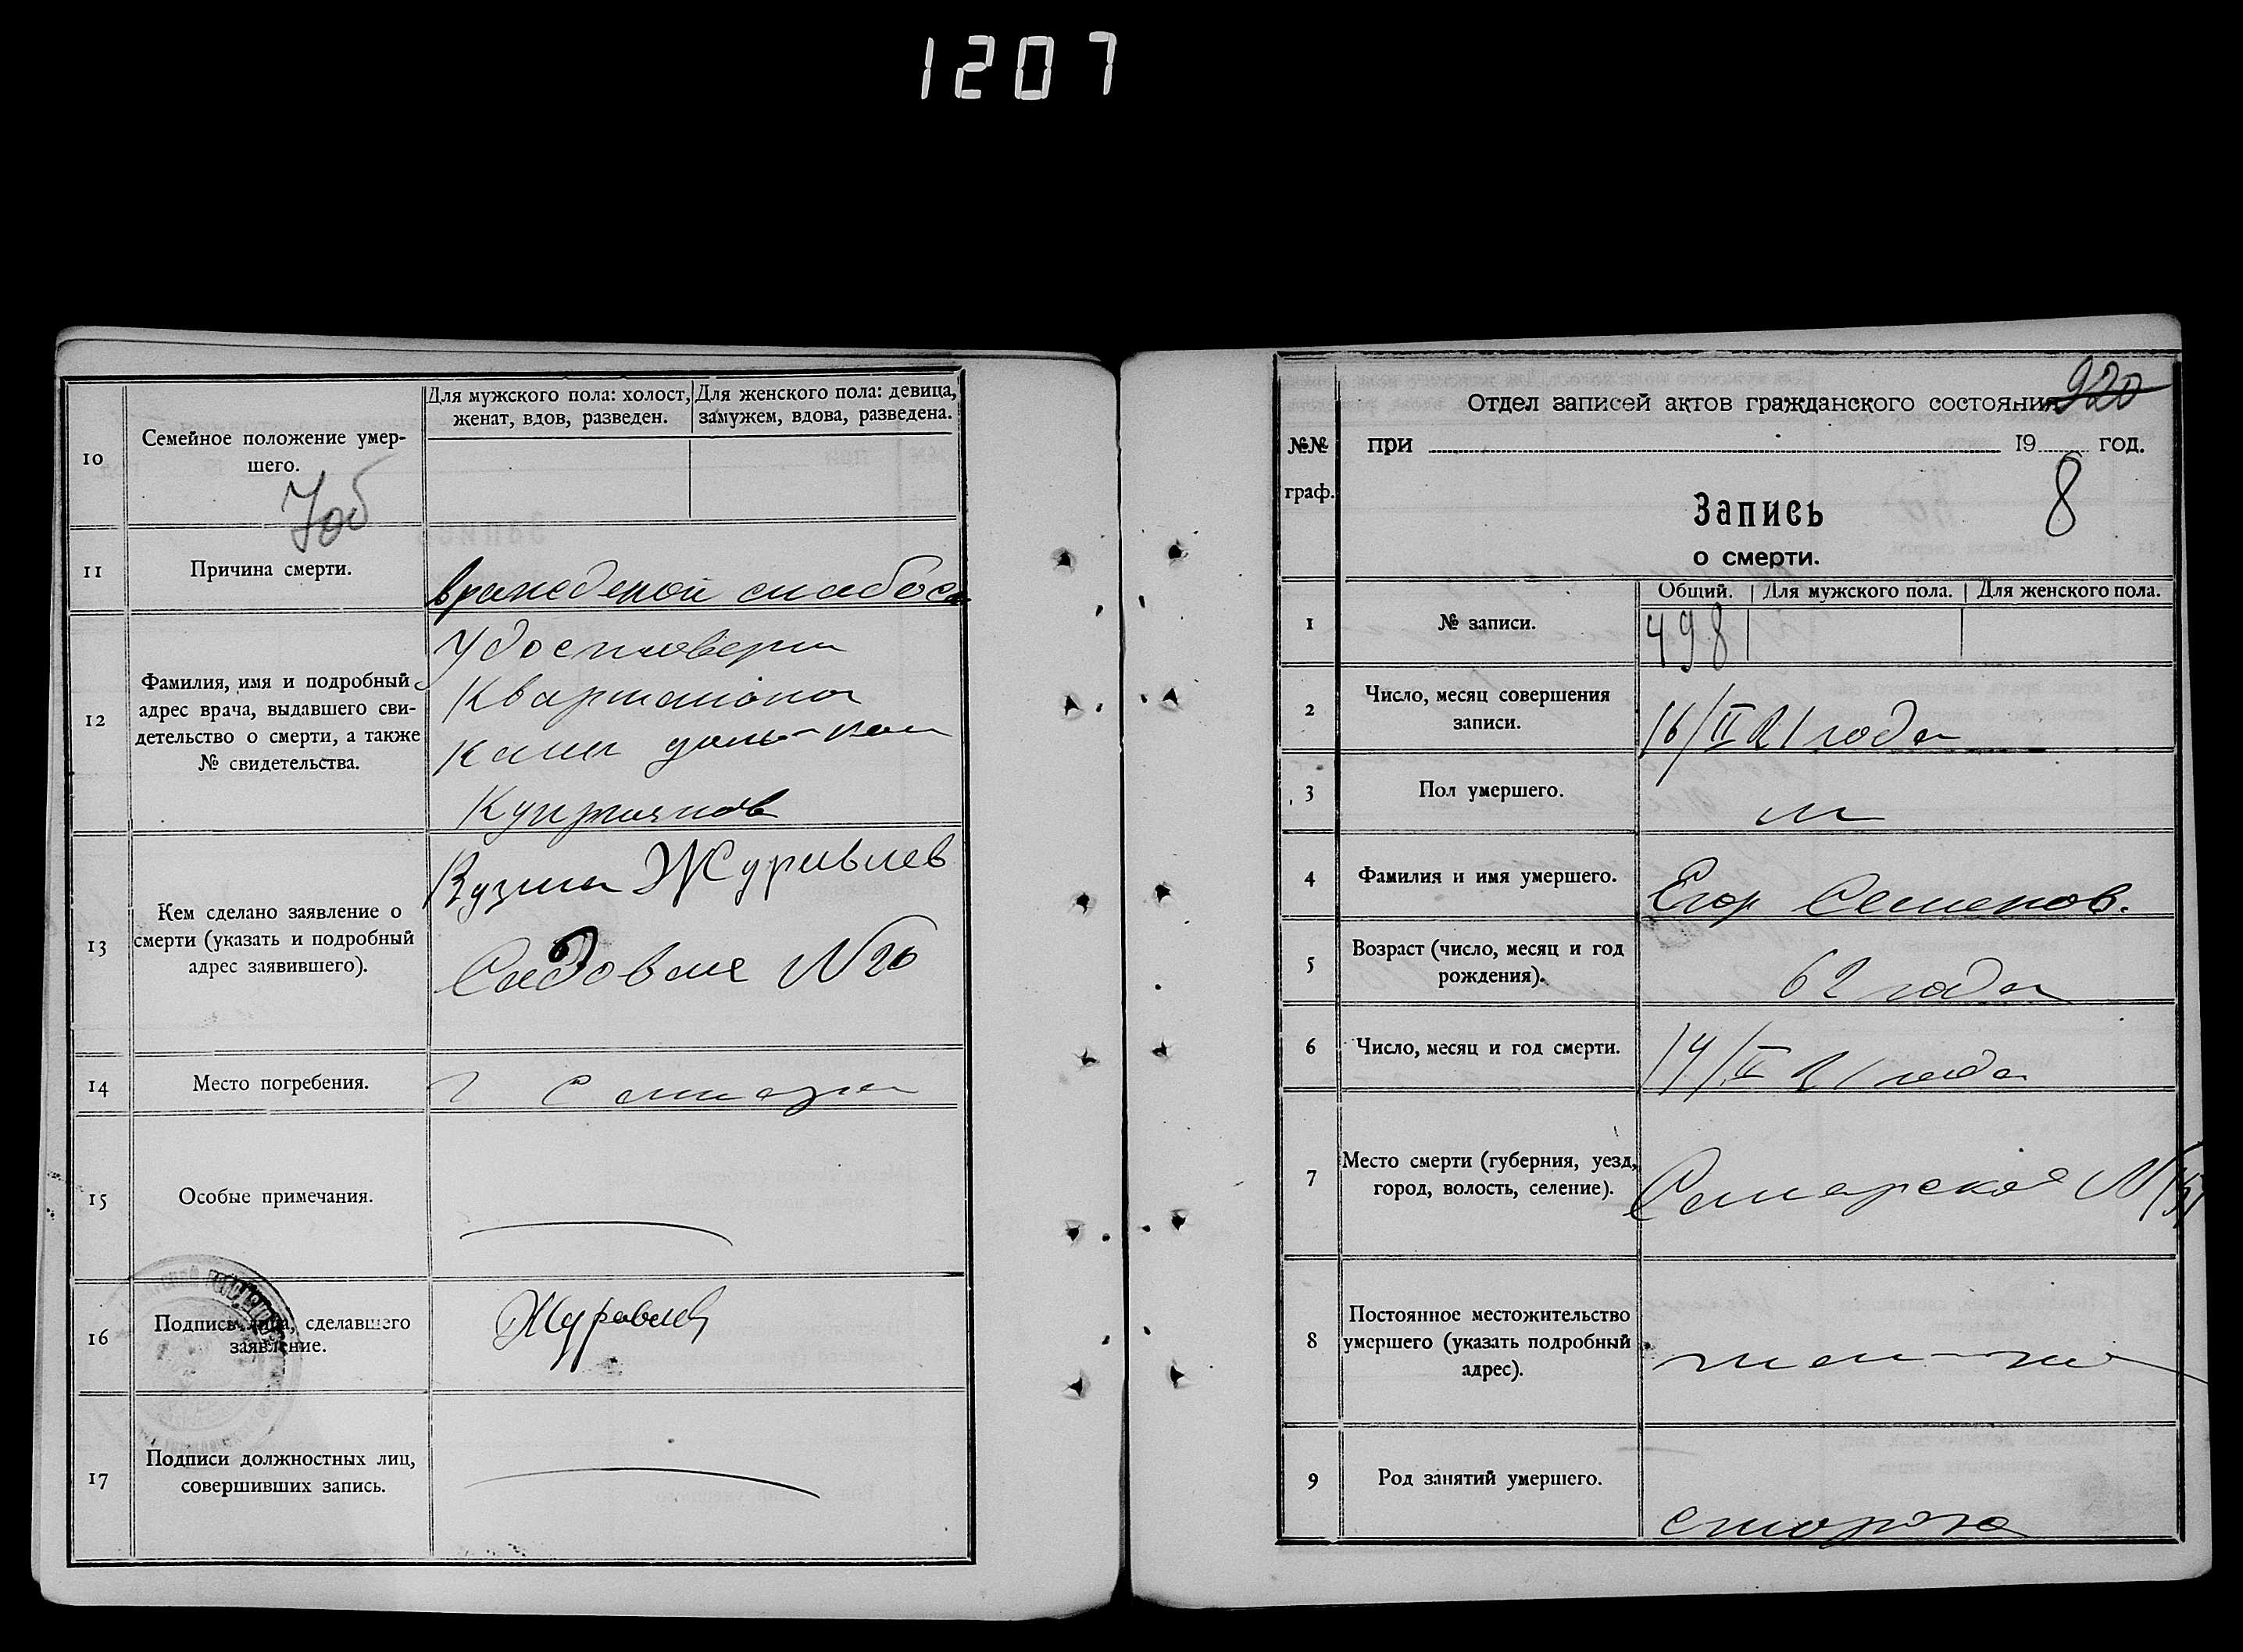 1207
10
Семейное положение умер-
шего.
Для мужского пола: холост,
женат, вдов, разведен.
Для женского пола: девица,
замужем, вдова, разведена.
11
Причина смерти.
12
Фамилия, имя и подробный
адрес врача, выдавшего сви-
детельство о смерти, а также
№ свидетельства.
Удостоверен
Квартально
Куприянов
13
Кем сделано заявление о
смерти (указать и подробный
адрес заявившего).
Кузма Журавлев
Садовая N
14
Место погребения.
г Самара
15
Особые примечания.
16
Подпись лица, сделавшего
заявление.
Журавлев
17
Подписи должностных лиц,
совершивших запись.
920
Отдел записей актов гражданского состояния
№№
граф.
при 19 год.
8
Запись
о смерти.
Общий. Для мужского пола. Для женского пола.
1
№ записи.
498
2
Число, месяц совершения
записи.
16/II 21 года
3
Пол умершего.
м
4
Фамилия и имя умершего.
Егор Семенов.
5
Возраст (число, месяц и год
рождения).
62 года
6
Число, месяц и год смерти.
14/II 21 года
7
Место смерти (губерния, уезд,
город, волость, селение).
Самарская N
8
Постоянное местожительство
умершего (указать подробный
адрес).
9
Род занятий умершего.
сторож